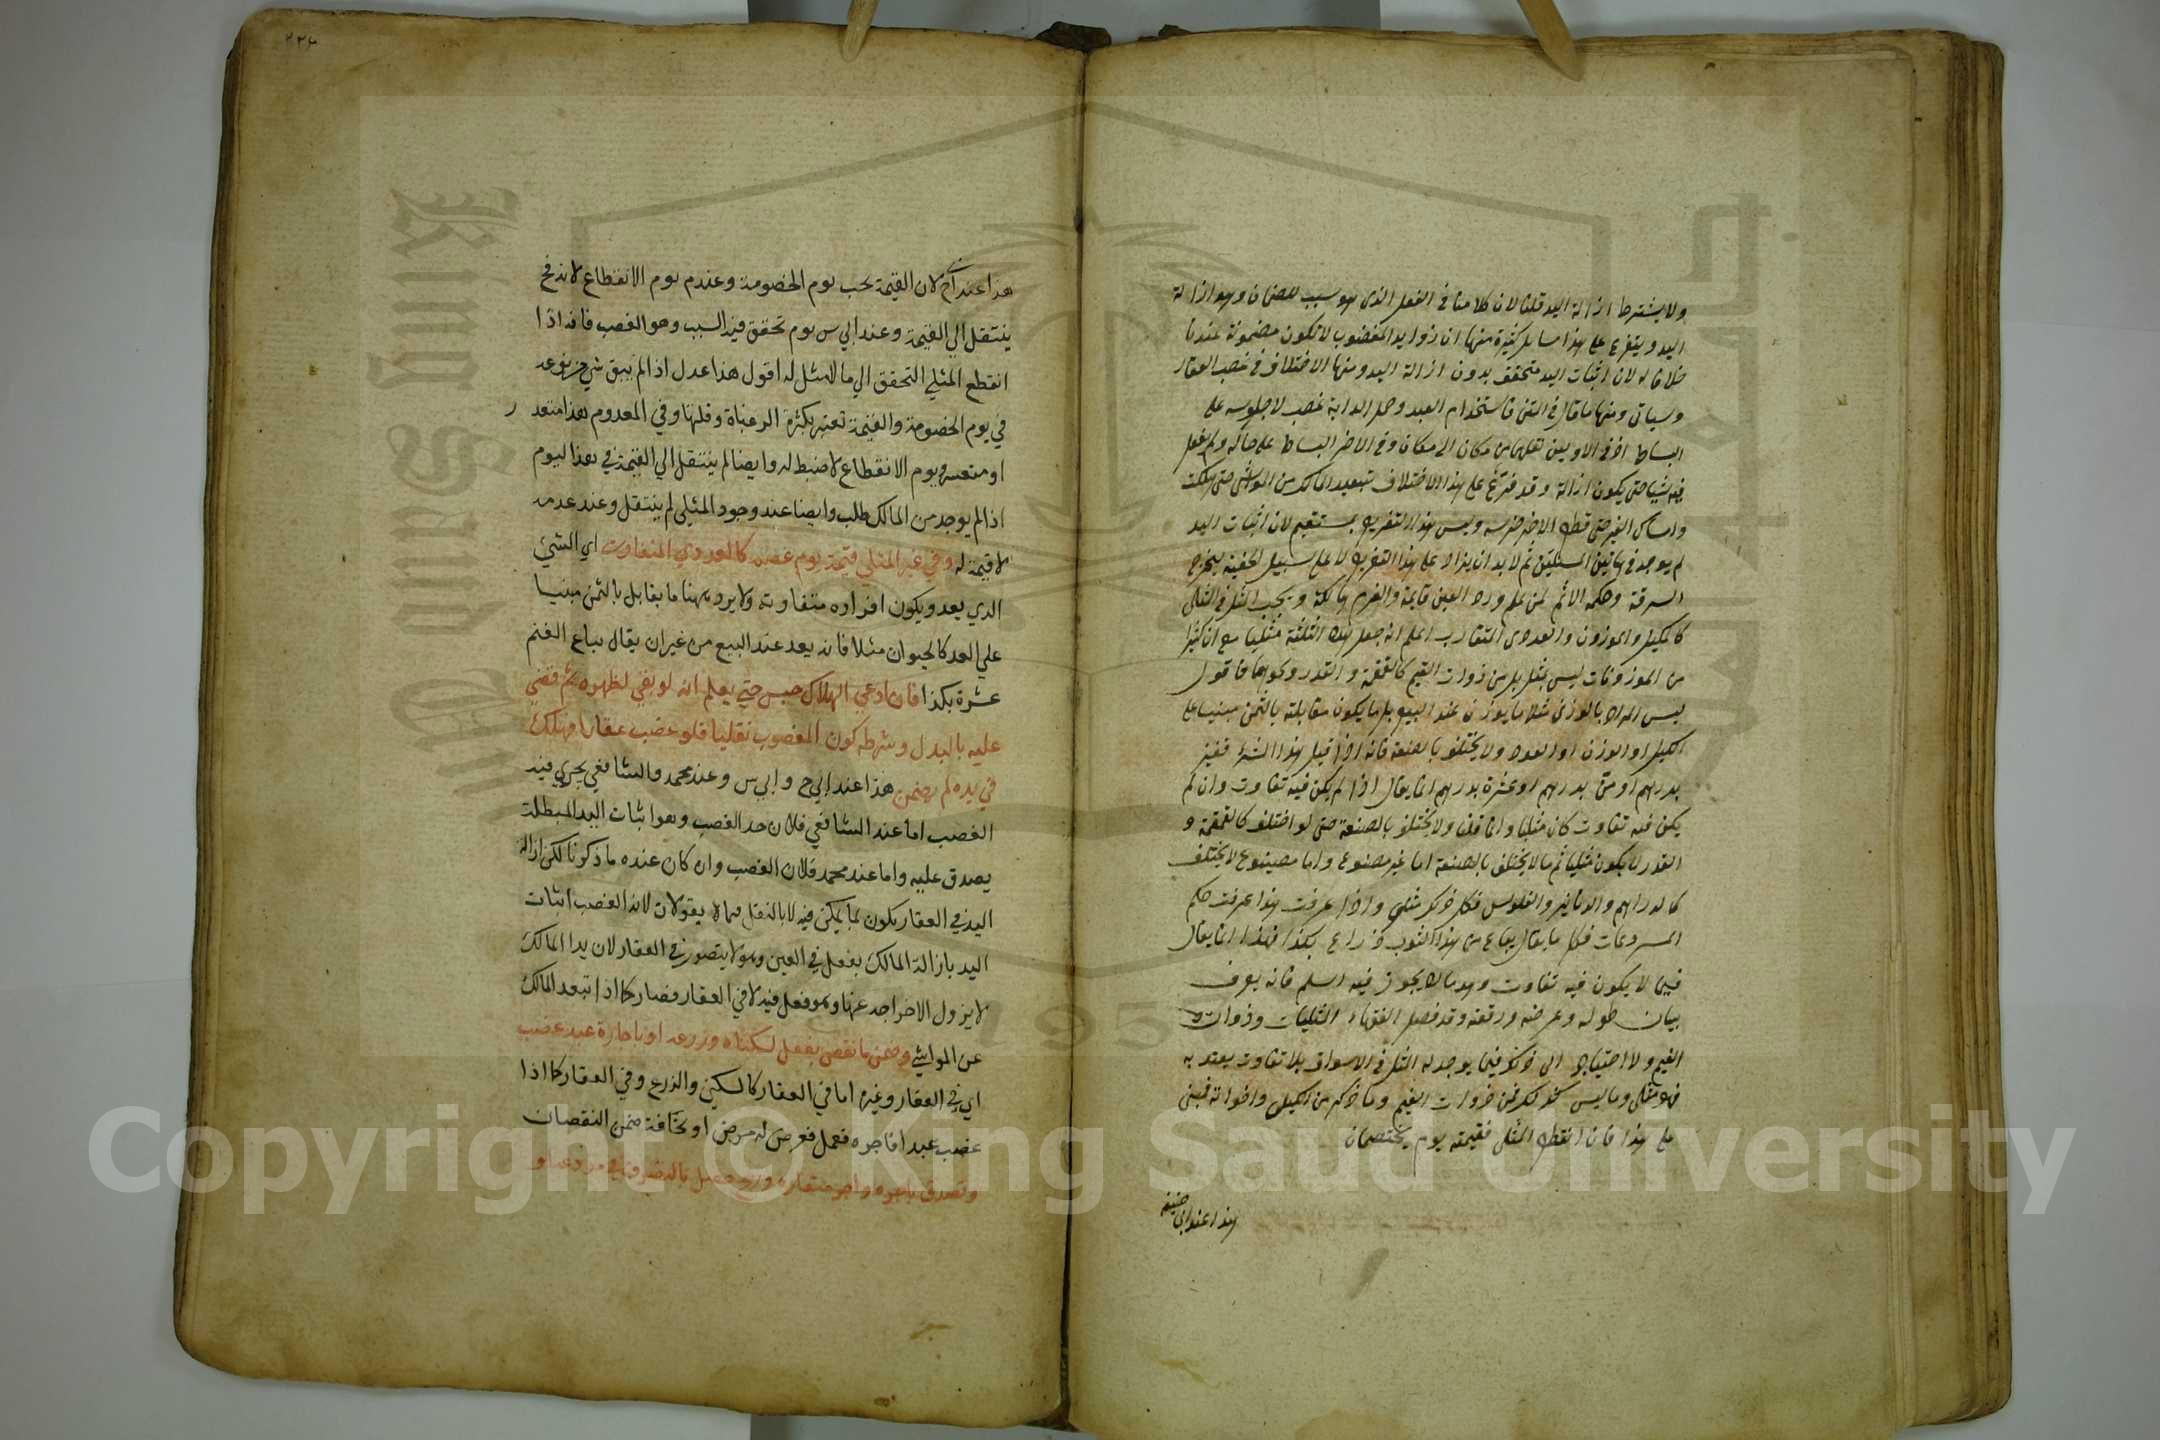 ولا يشترط ازالة اليد قلنا لان كلامنا في الفعل الذي هو سبب للضمان وهو ازالة
اليد ويتفرع على هذا مسايل كثيرة منها ان زوايد المغصوب لا تكون مضمونة عندنا
خلافا له لان اثبات اليد متحقق بدون ازالة اليد ومنها الاختلاف في غصب العقار
وسياتي ومنها ما قال في المتن فاستخدام العبد وحمل الدابة غصب لا جلوسه على
البساط اذ في الاوليين نقلهما من مكان الى مكان وفي الاخر البساط على حاله ولم يفعل
فيه شيئا حتى يكون ازالة وقد فرع على هذا الاختلاف تبعيد المالك من المواشي حتى هلكت
وامساك الغير حتى قطع الاخر ضرسه وليس هذا التفريع بمستقيم لان اثبات اليد
لم يوجد في هاتين المسئلتين ثم لا بد ان يزاد على هذا التعريف لا على سبيل الخفية ليخرج
السرقة وحكمه الاثم لمن علم ورد العين قايمة والغرم هالكة ويجب المثل في المثلي
كالمكيل والموزون والعددي المتقارب اعلم انه جعل هذه الثلثة مثليا مع ان كثيرا
من الموزونات ليس بمثلي بل من ذوات القيم كالقمقمة والقدر ونحوهما فاقول
ليس المراد بالوزني مثلا ما يوزن عند البيع بل ما يكون مقابلته بالثمن مبنيا على
الكيل او الوزن او العدد ولا يختلف بالصنعة فانه اذا قيل هذا الشئ قفيز
بدرهم او من بدرهم او عشرة بدرهم انما يقال اذا لم يكن فيه تفاوت وان لم
يكن فيه تفاوت كان مثليا وانما قلنا ولا يختلف بالصنعة حتى لو اختلف كالقمقمة و
القدر لا يكون مثليا ثم ما لا يختلف بالصنعة اما غير مصنوع واما مصنوع لا يختلف
كالدراهم والدنانير والفلوس فكل ذلك مثلي واذا عرفت هذا عرفت حكم
المذروعات فكل ما يقال يباع من هذا الثوب ذراع بكذا فهذا انما يقال
فيما لا يكون فيه تفاوت وهو ما يجوز فيه السلم فانه يعرف
بيان طوله وعرضه ورقعته وقد فصل الفقهاء المثليات وذوات
القيم ولا احتياج الى ذلك فما يوجد له المثل في الاسواق بلا تفاوت يعتد به
فهو مثلي وما ليس كذلك فمن ذوات القيم وما ذكر من الكيلي واخواته فمبني
على هذا فان انقطع المثلي فقيمته يوم يختصمان
هذا عند ابي حنيفة
٢٢٤
هذا عند ابي ح لان القيمة تجب يوم الخصومة وعند م يوم الانقطاع لانه ح
ينتقل الي القيمة وعند ابي س يوم تحقق فيه السبب وهو الغصب فانه اذا
انقطع المثلي التحق الي ما لا مثل له اقول هذا عدل اذ لم يبق شي من نوعه
في يوم الخصومة والقيمة تعتبر بكثرة الرغبات وقلتها وفي المعدوم هذا متعذر
او متعسر ويوم الانقطاع لا ضبط له وايضا لم ينتقل الي القيمة في هذا اليوم
اذ لم يوجد من المالك طلب وايضا عند وجود المثلي لم ينتقل وعند عدمه
لا قيمة له وفي غير المثلي قيمة يوم غصبه كالعددي المتفاوت اي الشي
الذي يعد ويكون افراده متفاوتة ولا يريد ههنا ما يقابل بالثمن مبنيا
علي العد كالحيوان مثلا فانه يعد عند البيع من غير ان يقال يباع الغنم
عشرة بكذا فان ادعي الهلاك حبس حتي يعلم انه لو بقي لظهر ثم قضي
عليه بالبدل وشرطه كون المغصوب نقليا فلو غصب عقارا وهلك
في يده لم يضمن هذا عند ابي ح وابي س وعند محمد والشافعي يجري فيه
الغصب اما عند الشافعي فلان حد الغصب وهو اثبات اليد المبطلة
يصدق عليه واما عند محمد فلان الغصب وان كان عنده ما ذكرنا لكن ازالة
اليد في العقار يكون بما يمكن فيه لا بالنقل وهما يقولان لانه الغصب اثبات
اليد بازالة المالك بفعل في العين وهو لا يتصور في العقار لان يد المالك
لا يزول الا باخراجه عنها وهو فعل فيه لا في العقار فصار كما اذا تبعد المالك
عن المواشي وضمن ما نقص بفعل لسكناه وزرعه او باجارة عبد غصب
اي في العقار وغيره اما في العقار كالسكني والزرع وفي العقار كما اذا
غصب عبدا فاجره فعمل فعرض له مرض او نحافة ضمن النقصان
وتصدق باجره واجر مستعاره وربح حصل بالتصرف في مودعه او
Copyright © King Saud University